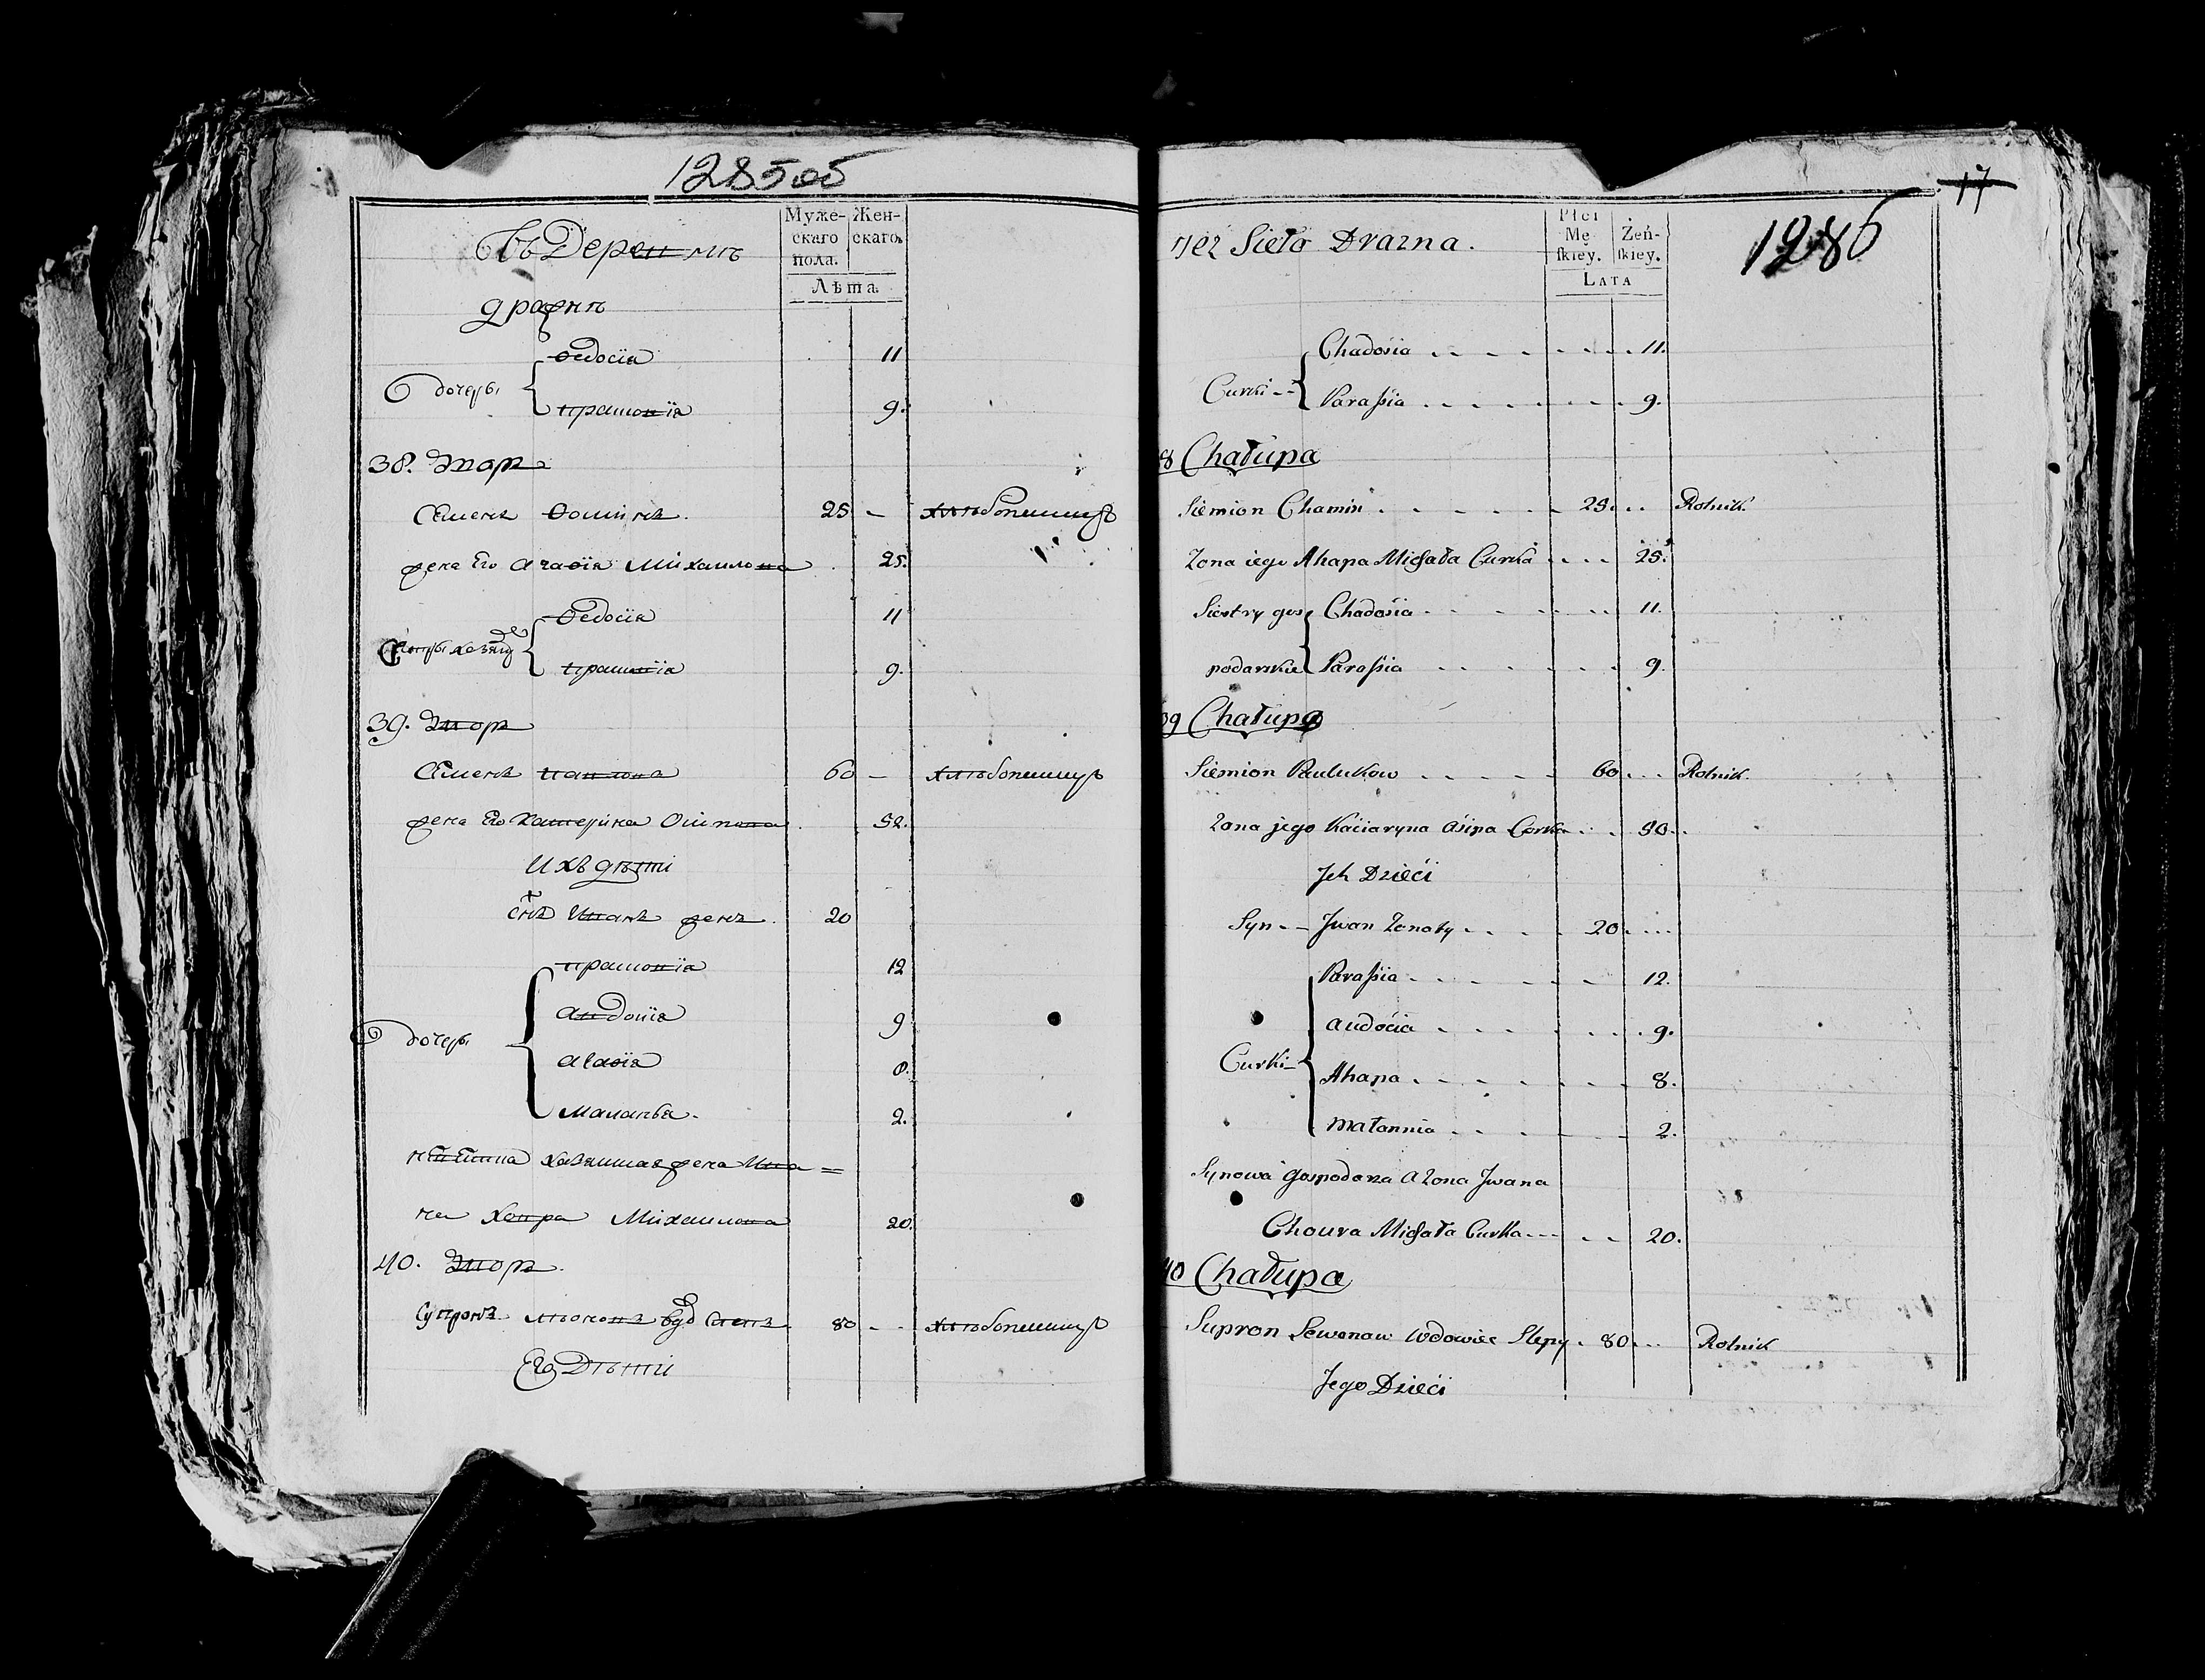 1285об
Въ Деревнѣ
Дражнѣ
Муже-
скаго
пола.
Жен-
скаго.
Лѣта
дочеры
Ѳедосія 11
Прасковія 9.
38. Дворъ
Семенъ Ѳоминъ. 25 – хлѣбопашецъ
жена Его Агафія Михаилова 25.
Сестры хозяй
Ѳедосія 11
9.
39. Дворъ
Семенъ Павлова 60 – хлѣбопашецъ
жена Его Катерина Осипова 52.
Ихъ дѣти
Сынъ Иванъ женъ. 20
дочеры
12
Авдотія 9
Агафія 8.
Маланья. 2.
невѣстка хозяина жена Ива=
на Хевра Михаилова 20.
40. Дворъ
Супронъ вдо 80 – хлѣбопашецъ
Его Дѣти
17
1286
Też Sieło Drazna.
Płci
Mę
skiey.
Żeń-
skiey.
Lata
Curki
Chadosia 11.
Parassia 9.
8 Chałupa
Siemion Chamin 25. Rolnik.
Zona iego Ahapa Michała Curka 25.
Siostry gos
podarskie
Chadosia 11.
Parassia 9.
39 Chałupa
Siemion Paulukow 60 Rolnik.
Zona jego Kaciaryna Asipa Corka 50.
Jch Dzieći
Syn Jwan Zonaty 20
Curki
Parassia 12.
Audocia 9.
Ahapa 8.
Małannia 2.
Synowa Gospodarza a Zona Jwana
Choura Michała Curka 20.
40 Chałupa
Supron Lewonaw Wdowiec Slepy 80 Rolnik
Jego Dzieći